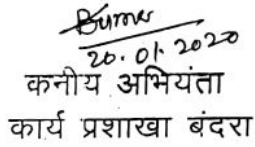 20.01.2020
कनीय अभियंता
कार्य प्रशाखा बंदरा